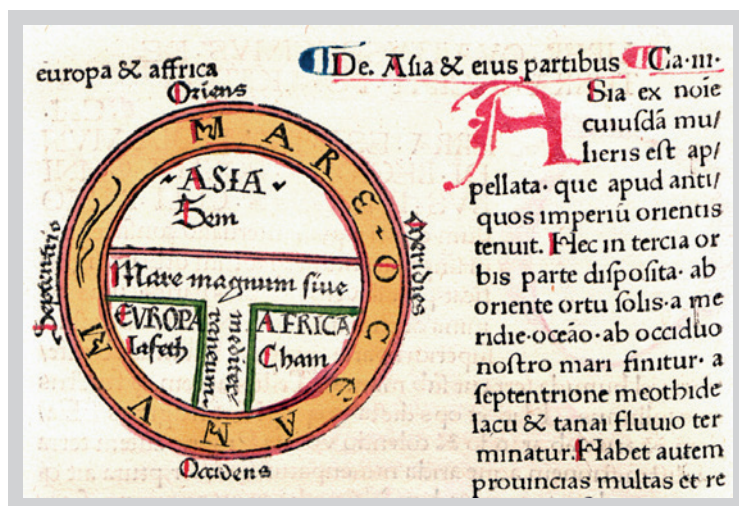 europa & affrica
Oriens
MARE OCEANVM
ASIA
Sem
Septentrio
Meridies
Mare magnum ſiue
mediter
raneum
EVROPA
Iafeth
AFRICA
Cham
Occidens
De. Aſia & eius partibus Ca·iii·
ASia ex noīe
cuiuſdā mu/
lieris eſt ap/
pellata· que apud anti/
quos imperiū orientis
tenuit. Hec in tercia or
bis parte diſpoſita· ab
oriente ortu ſolis· a me
ridie· oceāo· ab occiduo
noſtro mari finitur· a
ſeptentrione meothide
lacu & tanai fluuio ter
minatur. Habet autem
prouincias multas et re